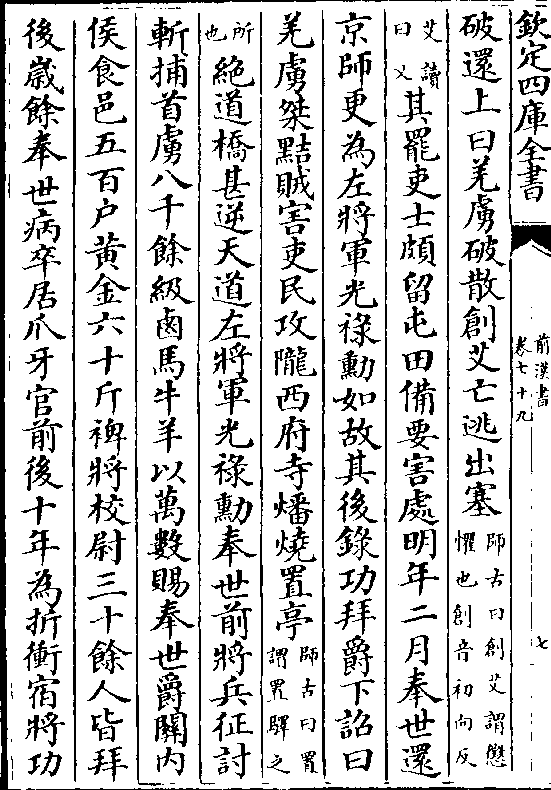 欽定四庫全書
前漢書
卷七十九
七
破還上曰羌虜破散創艾亡逃出塞師古曰創艾謂懲懼也創音初向反
艾讀曰乂其罷吏士頗留屯田備要害處明年二月奉世還
京師更為左將軍光祿勳如故其後錄功拜爵下詔曰
羌虜桀黠賊害吏民攻隴西府寺燔燒置亭師古曰置謂置驛之
所也絶道橋甚逆天道左將軍光祿勳奉世前將兵征討
斬捕首虜八千餘級鹵馬牛羊以萬數賜奉世爵關內
侯食邑五百户黃金六十斤裨將校尉三十餘人皆拜
後嵗餘奉世病卒居爪牙官前後十年為折衝宿將功